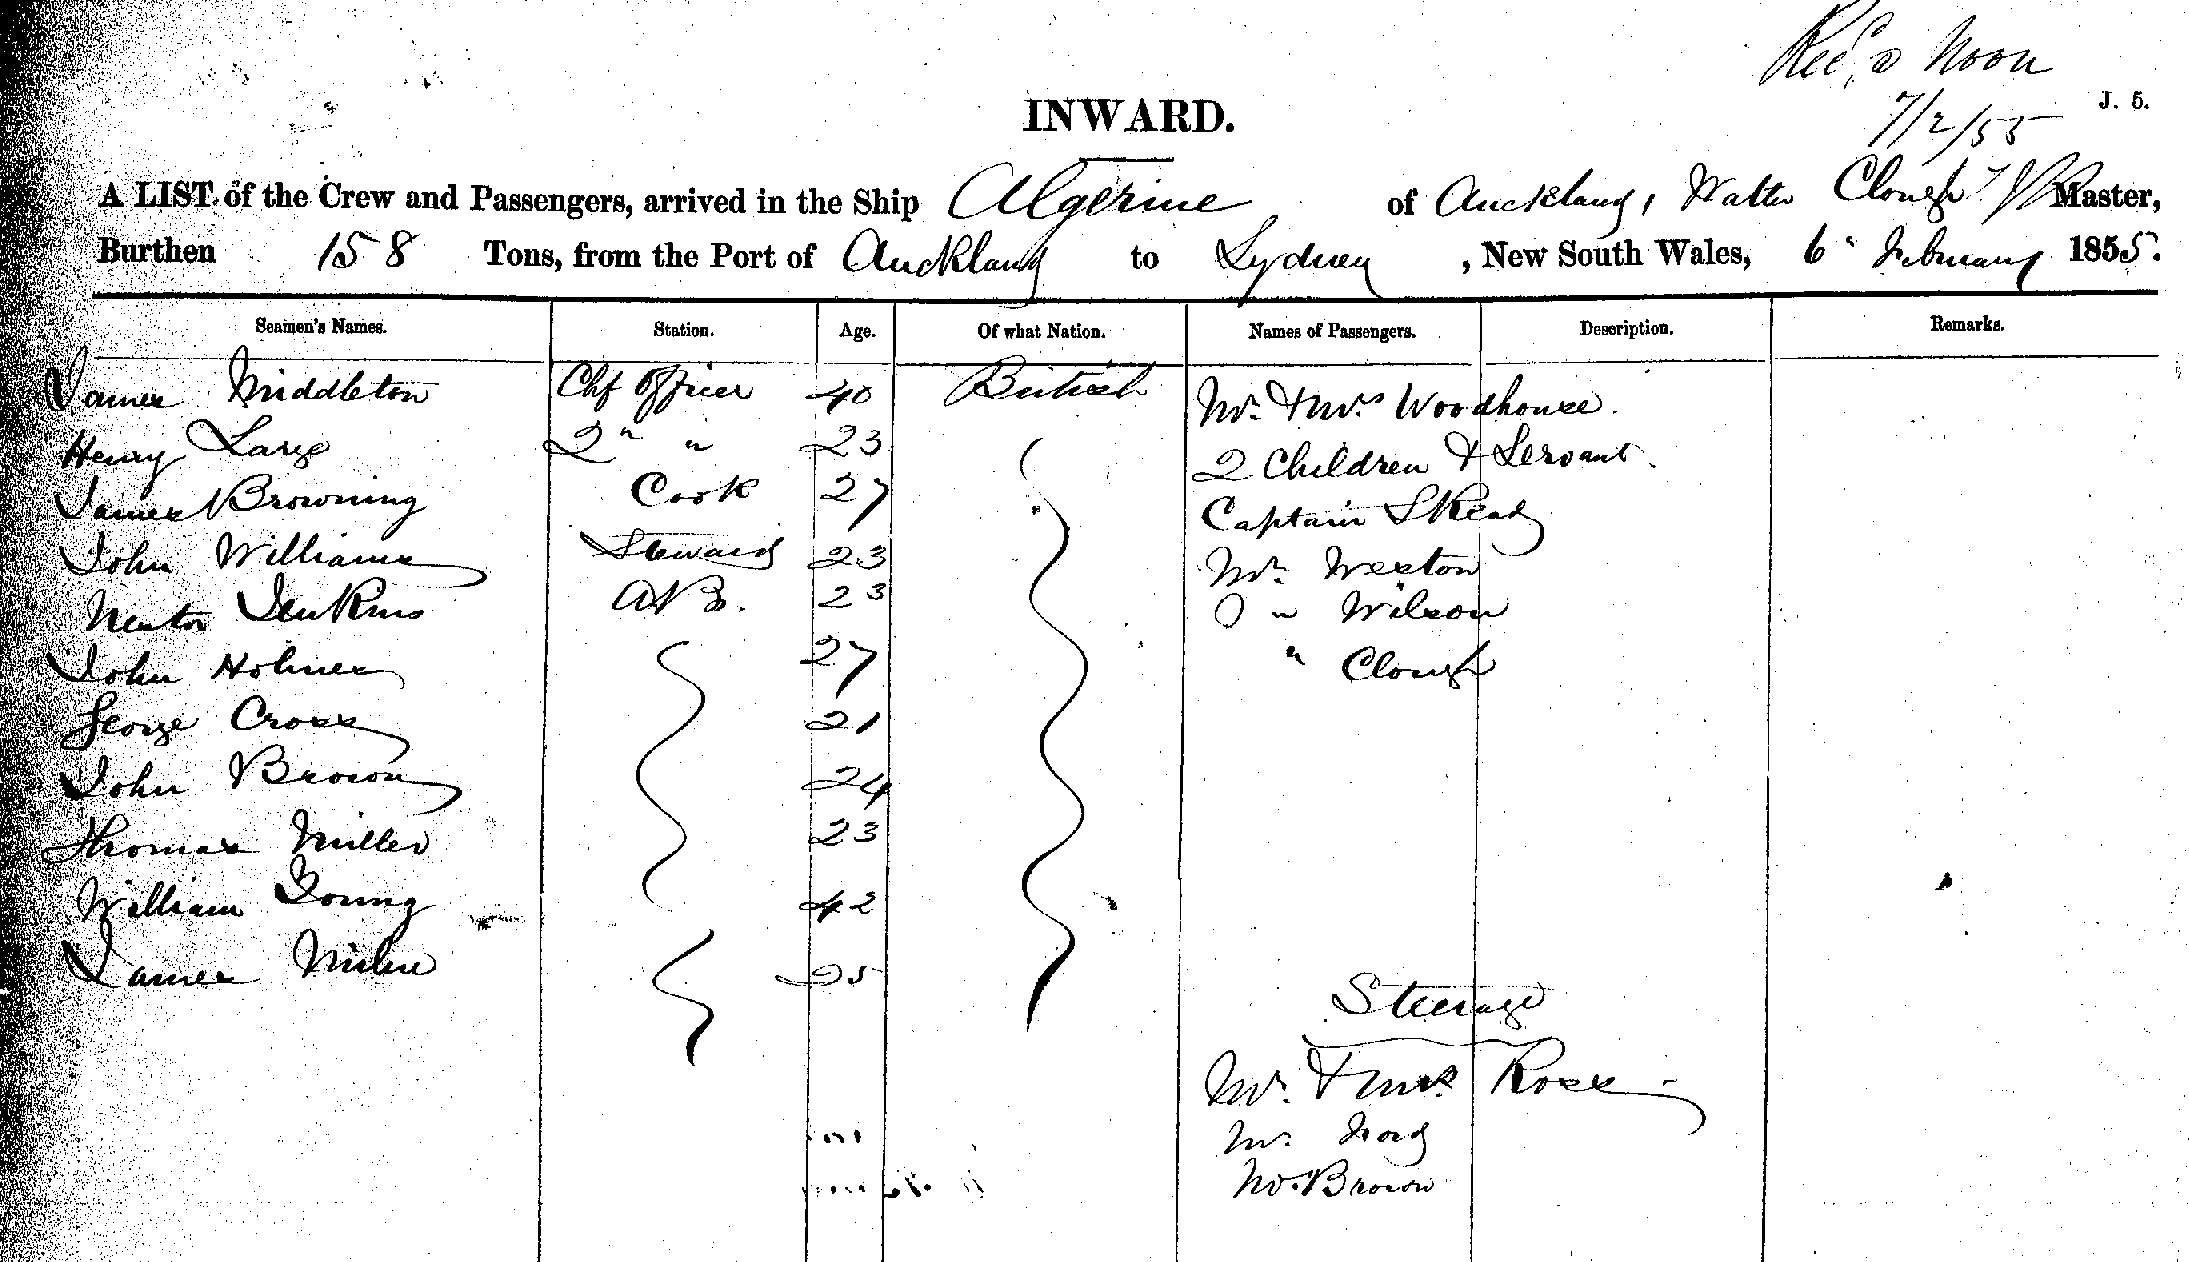 Rec'd Noon
7/2/55
J. 5.
INWARD.
A LIST of the Crew and Passengers, arrived in the Ship Algerine of Auckland, Walter Clough Master,
Burthen 158 Tons, from the Port of Auckland to Sydney, New South Wales, 6" February 1855.
Seamen's Names. Station. Age. Of what Nation. Names of Passengers. Description. Remarks.
James Middleton Chf Officer 40 British Mr. & Mrs Woodhouse.
Henry Large 2" " 23 2 Children & Servant.
James Browning Cook 27 Captain Skead
John Williams Steward 23 Mr. Weston
Newton Jenkins A.B. 23 " Wilson
John Holmes 27 " Clough
George Cross 21
John Brown 24
Thomas Miller 23
William Young 42
James Milne 25
Steerage
Mr. & Mrs. Ross
Mr. Ford
Mr. Brown